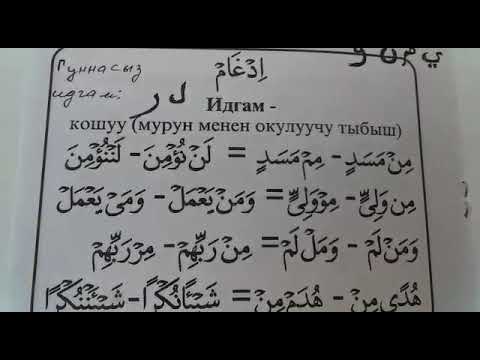 ي م ن و
Гуннасыз
идгам: ل ر
اِدْغَامْ
Идгам -
кошуу (мурун менен окулуучу тыбыш)
مِنْ مَسَدٍ - مِمْ مَسَدٍ = لَنْ نُؤْمِنَ - لَنُّؤْمِنَ
مِن وَلِيٍّ - مِوْوَلِيٍّ = وَمَنْ يَعْمَلْ - وَمَىْ يَعْمَلْ
وَمَنْ لَمْ - وَمَلْ لَمْ = مِنْ رَبِّهِمْ - مِرْ رَبِّهِمْ
هُدًى مِنْ - هُدَمْ مِنْ = شَيْئًا نُكْرًا - شَيْئَنْنُكْرًا